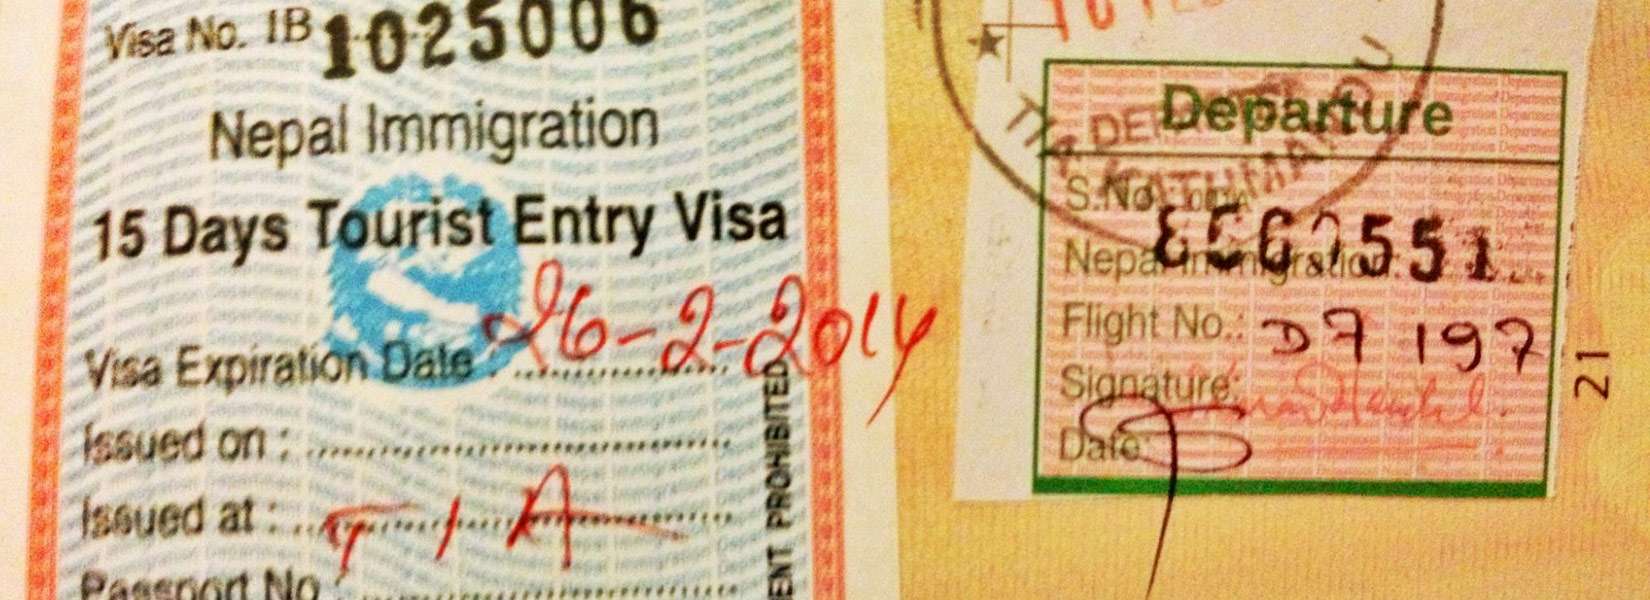 Visa No. IB 1025006
Nepal Immigration
15 Days Tourist Entry Visa
Visa Expiration Date : 26-2-2014
Issued on :
Issued at : TIA
Passport No
ENT PROHIBITED
TIA KATHMANDU
Departure
S.No.
Nepal Immigration
Flight No.: D7 197
Signature:
Date:
21